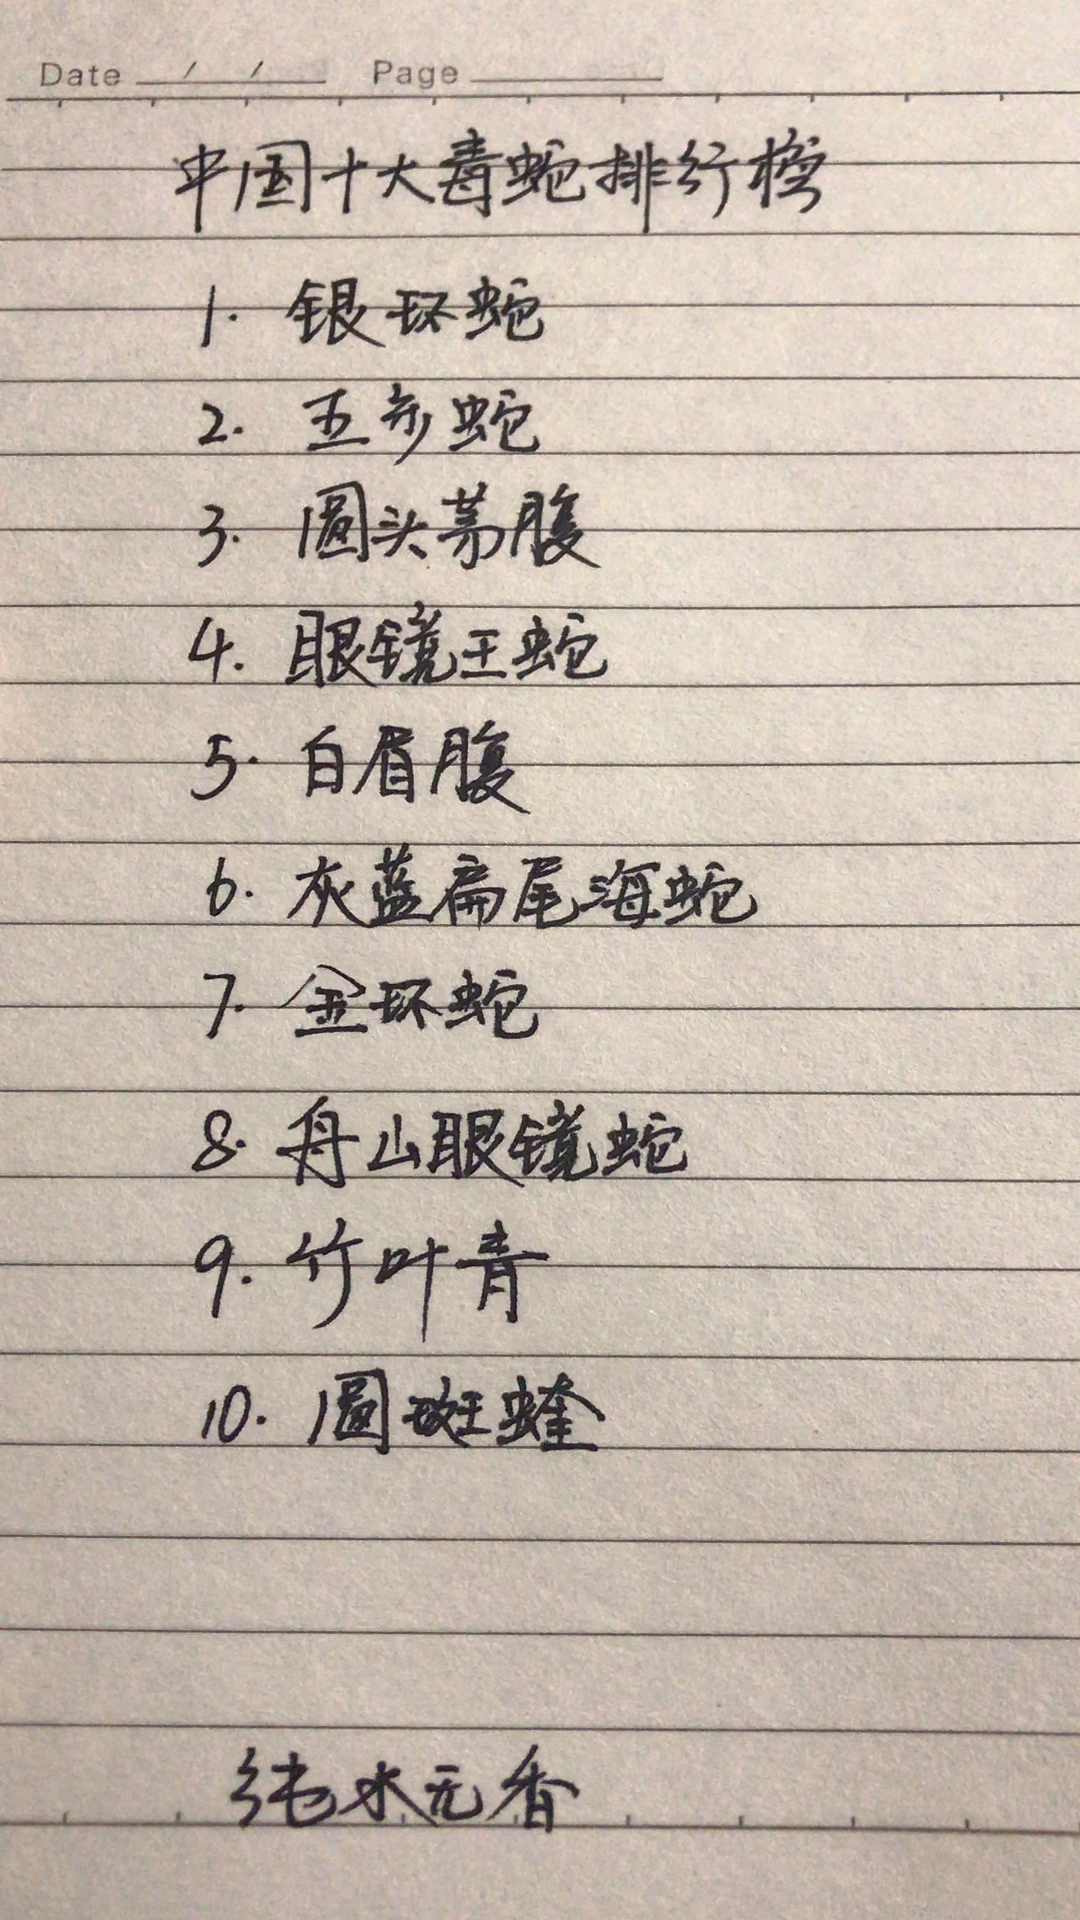 Date / / Page
中国十大毒蛇排行榜
1. 银环蛇
2. 五步蛇
3. 圆头茅腹
4. 眼镜王蛇
5. 白眉腹
6. 灰蓝扁尾海蛇
7. 金环蛇
8. 舟山眼镜蛇
9. 竹叶青
10. 圆斑蝰
纯水无香